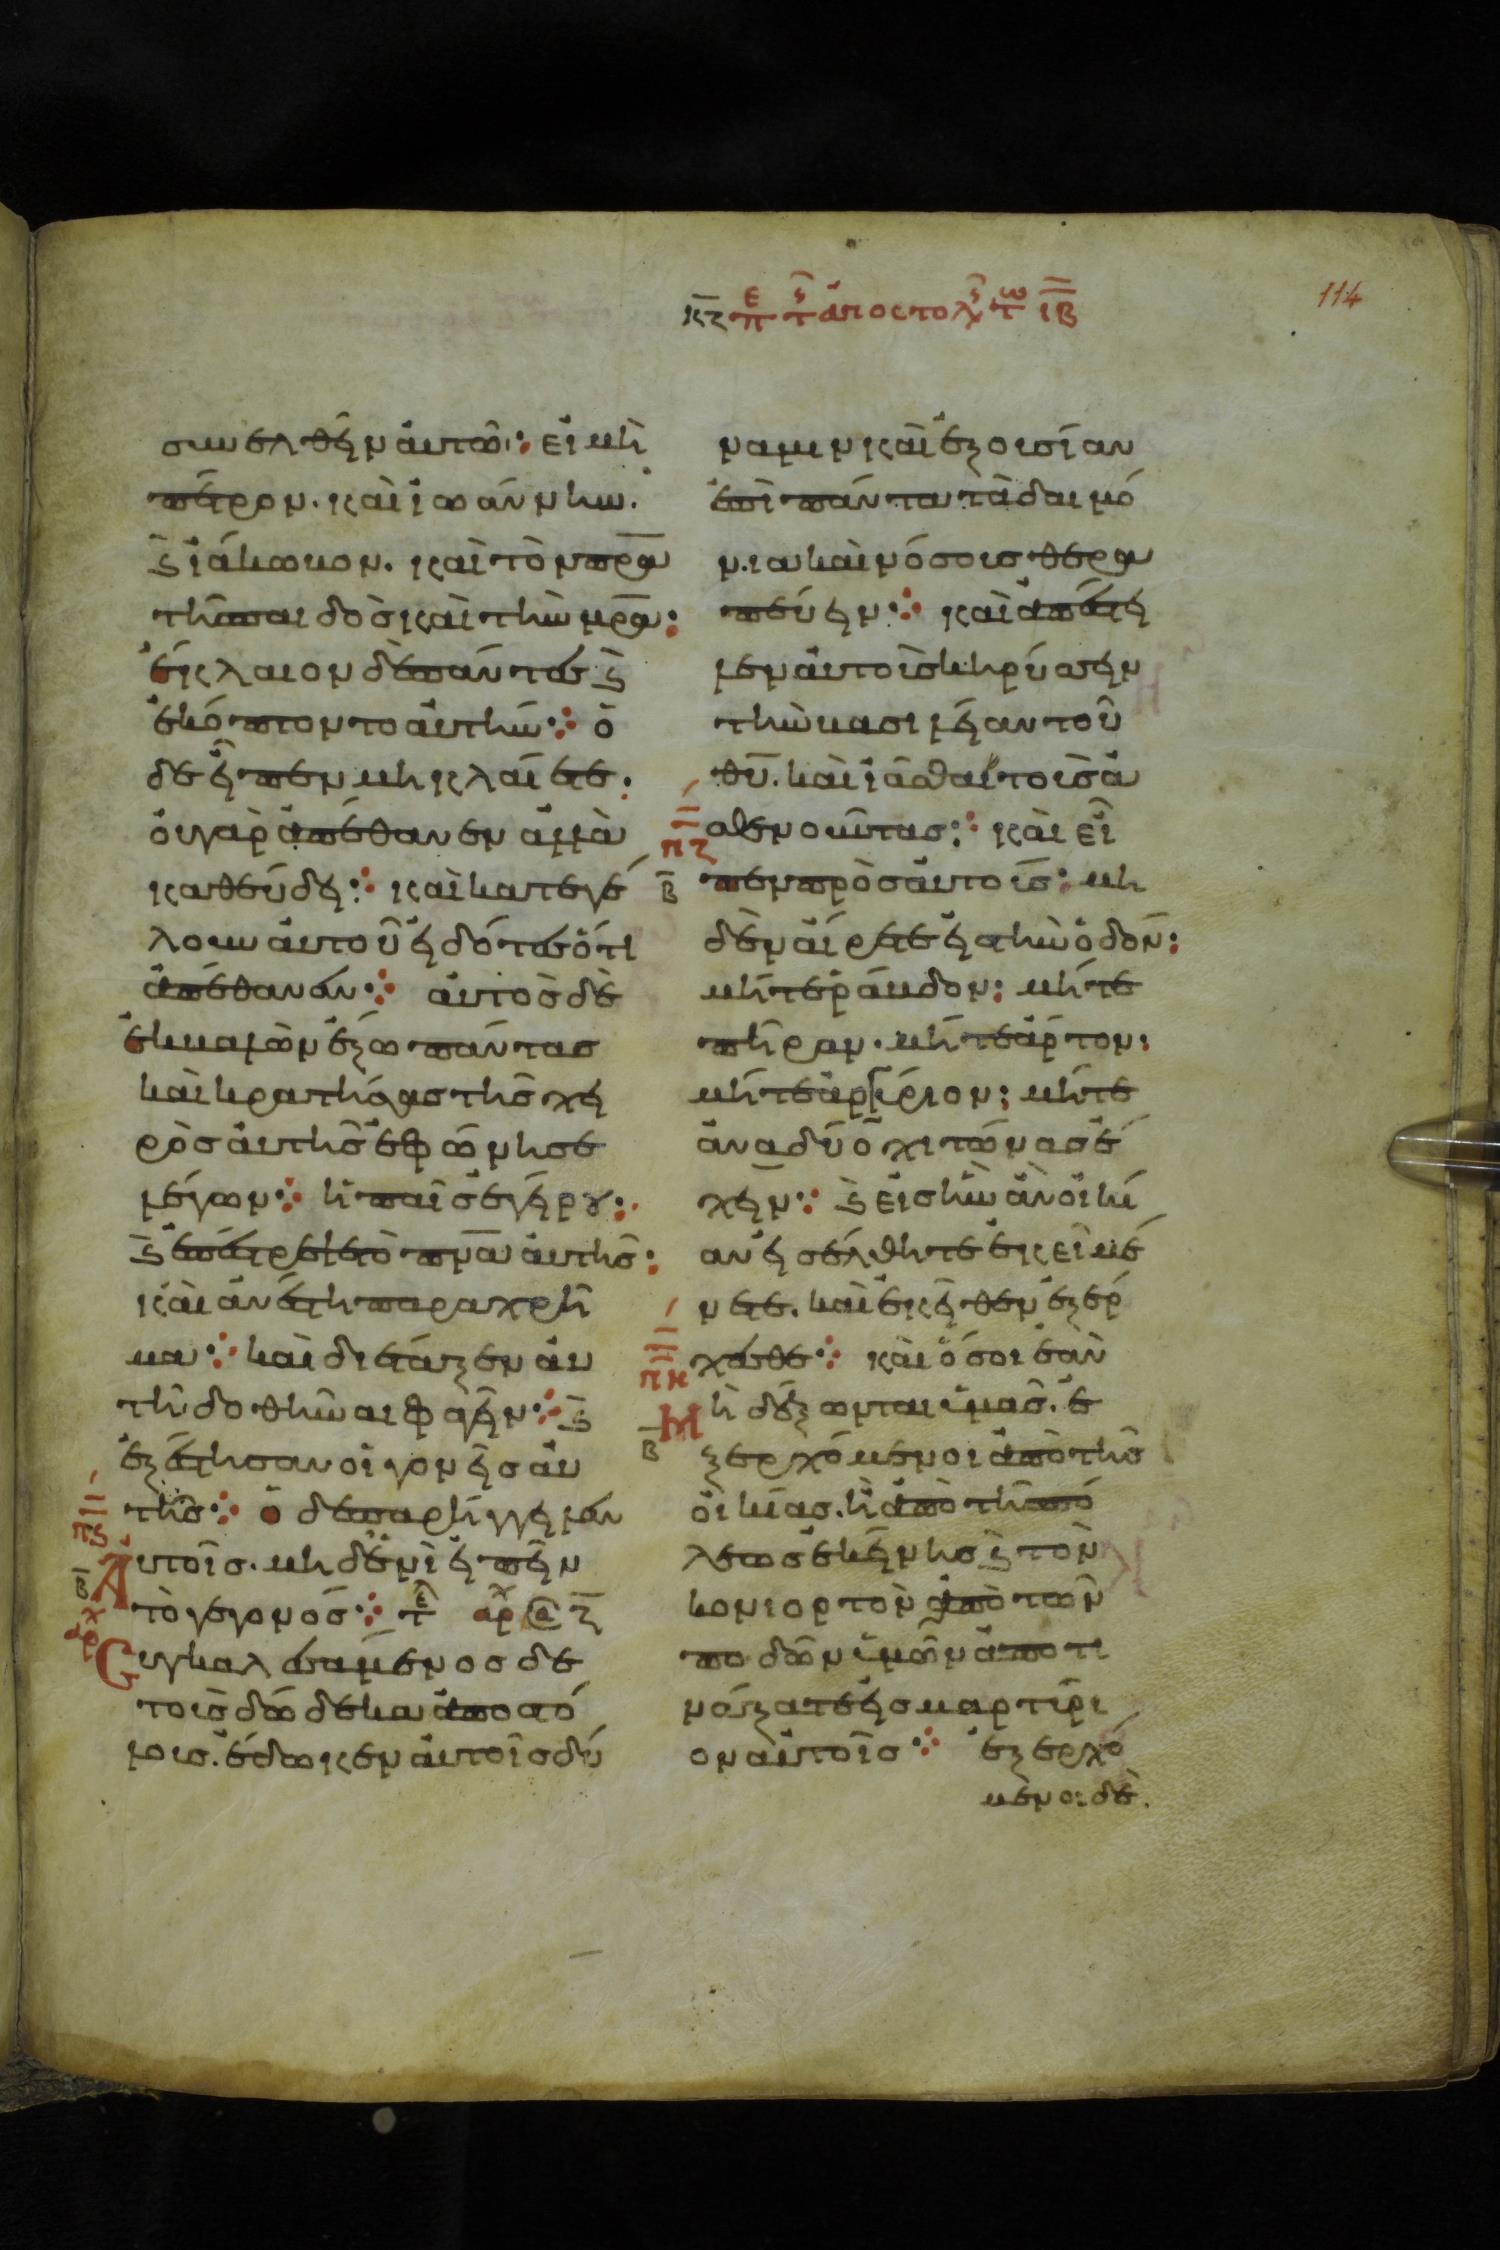 κζ επ τ αποστολ τω ιβ
114
συνελθεῖν αὐτῶ: εἰ μὴ
πέτρον. καὶ ἰωάννην.
ϗ ἰάκωβον. καὶ τὸν πρ̅α̅
τῆς παιδὸς καὶ τὴν μρ̅α̅:
ἔκλαιον δὲ πάντες ϗ
ἐκόπτοντο αὐτήν: ὁ
δὲ εἶπεν μὴ κλαίετε.
οὐ γὰρ ἀπέθανεν ἀλλὰ
καθεύδει: καὶ κατεγέ
λουν αὐτοῦ εἰδότες ὅτι
ἀπέθανεν: αὐτὸς δὲ
ἐκβαλὼν ἔξω πάντας
καὶ κρατήσας τῆς χει
ρὸς αὐτῆς ἐφώνησε
λέγων: ἡ παῖς ἐγείρου:
ϗ ἐπέστρεψε τὸ πν̅α̅ αὐτῆς:
καὶ ἀνέστη παραχρῆ
μα: καὶ διέταξεν αὐ
τῆ δοθῆναι φαγεῖν: ϗ
ἐξέστησαν οἱ γονεῖς αὐ
τῆς: ὁ δὲ παρήγγειλεν
πϛ
β
Αὐτοῖς. μηδενὶ εἰπεῖν
τὸ γεγονός: τε αρχ ζ
αρχ
Συγκαλεσάμενος δὲ
τοὺς δώδεκα ἀποστό
λους. ἔδωκεν αὐτοῖς δύ
ναμιν καὶ ἐξουσίαν
ἐπὶ πάντα τὰ δαιμό
νια καὶ νόσους θερα
πεύειν: καὶ ἀπέστει
λεν αὐτοὺς κηρύσσειν
τὴν βασιλείαν τοῦ
θ̅υ̅. καὶ ἰᾶσθαι τοὺς ἀ
σθενοῦντας: καὶ εἶ
πζ
β
πεν πρὸς αὐτούς: μη
δὲν αἴρετε εἰς τὴν ὁδόν:
μήτε ῥάβδον: μήτε
πήραν. μήτε ἄρτον:
μήτε ἀργύριον: μήτε
ἀνὰ δύο χιτῶνας ἔ
χειν: ϗ εἰς ἣν ἂν οἰκί
αν εἰσέλθητε ἐκεῖ μέ
νετε. καὶ ἐκεῖθεν ἐξέρ
χεσθε: καὶ ὅσοι ἐὰν
πη
β
Μὴ δέξωνται ὑμᾶς. ἐ
ξερχόμενοι ἀπὸ τῆς
οἰκίας. ἢ ἀπὸ τῆς πό
λεως ἐκείνης ϗ τὸν
κονιορτὸν ἀπὸ τῶν
ποδῶν ὑμῶν ἀποτι
νάξατε εἰς μαρτύρι
ον αὐτοῖς: ἐξερχό
μενοι δὲ.